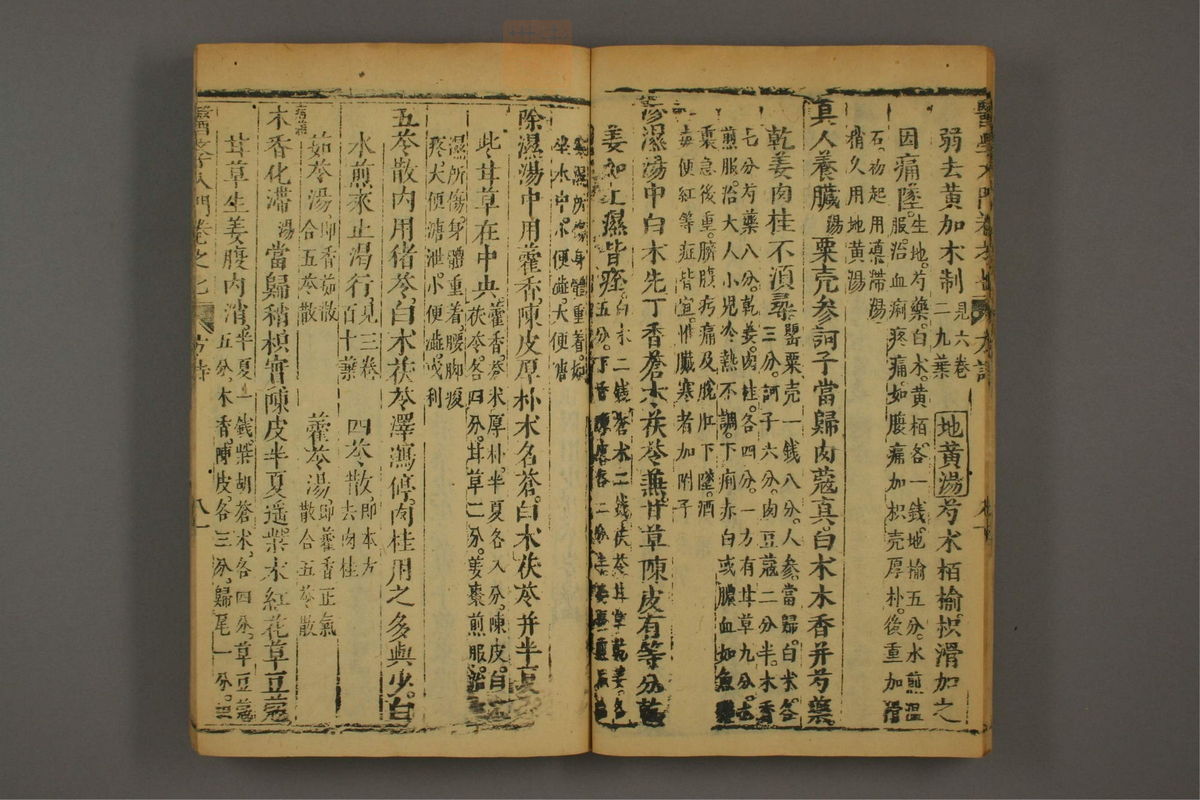 弱去黃加木制見六卷二九葉 地黃湯芍术栢榆枳滑加之
因痛墜。生地。芍藥。白术。黃栢各一錢。地榆五分。水煎溫
服。治血痢疼痛。如腹痛加枳壳厚朴。後重加滑
石。初起用導滯湯
稍久用地黃湯
真人養臟湯粟壳參訶子當歸肉蔻真白术木香并芍藥
乾姜肉桂不須尋罌粟壳一錢八分。人參。當歸。白术。各
三分。訶子六分。肉豆蔻二分半。木香
七分。芍藥八分。乾姜。肉桂。各四分。一方有甘草九分。
煎服。治大人小兒冷熱不調。下痢赤白。或膿血如魚
裏急後重。臍腹疞痛及脫肛下墜。酒
毒便紅等症皆宜。惟臟寒者加附子
滲濕湯中白术先丁香蒼术茯苓兼甘草陳皮有等分
姜加工濕皆痊。白术二錢。蒼术二錢。茯苓甘草乾姜。各
五分。丁香陳
寒濕所傷。身體重着。如
坐水中。小便澁。大便溏
除濕湯中用藿香陳皮厚朴术名蒼。白术茯苓并半夏
此甘草在中央。藿香。蒼术厚朴。半夏各八分。陳皮。白
茯苓。各四分。甘草二分。姜棗煎服。治
濕所傷。身體重着。腰脚痠
疼。大便溏泄。小便澁或利
五苓散內用猪苓。白术茯苓澤瀉停。肉桂用之多與少。白
水煎來止渴行見三卷百十葉 四苓散即本方去肉桂
茹苓湯即香茹散合五苓散 藿苓湯即藿香正氣散合五苓散
木香化滯湯當歸稍枳實陳皮半夏遥柴术紅花草豆蔻
甘草生姜腹內消。半夏一錢。柴胡蒼术。各四分。草豆蔻
五分。木香陳皮。各三分。歸尾一分。